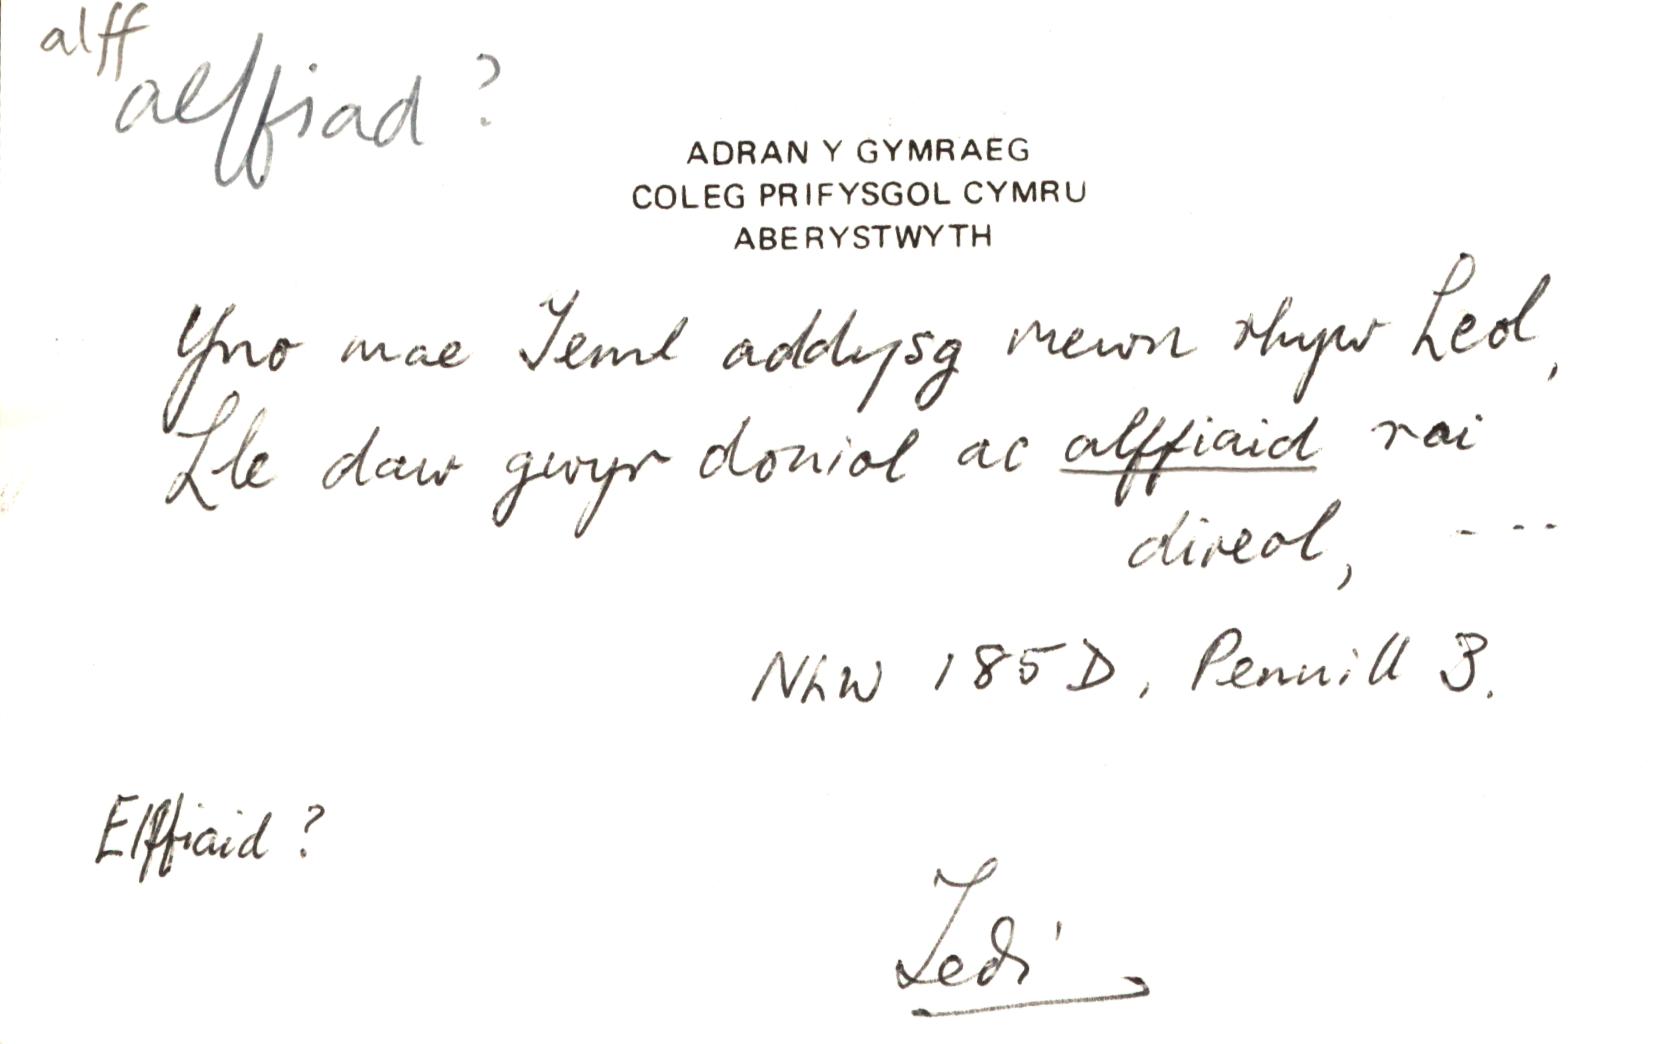 alff
alffiad?
ADRAN Y GYMRAEG
COLEG PRIFYSGOL CYMRU
ABERYSTWYTH
Yno mae Teml addysg mewn rhyw Leol,
Lle daw gwyr doniol ac alffiaid rai
direol, ----
NLW 185D, Pennill 3.
Elffiaid?
Tedi